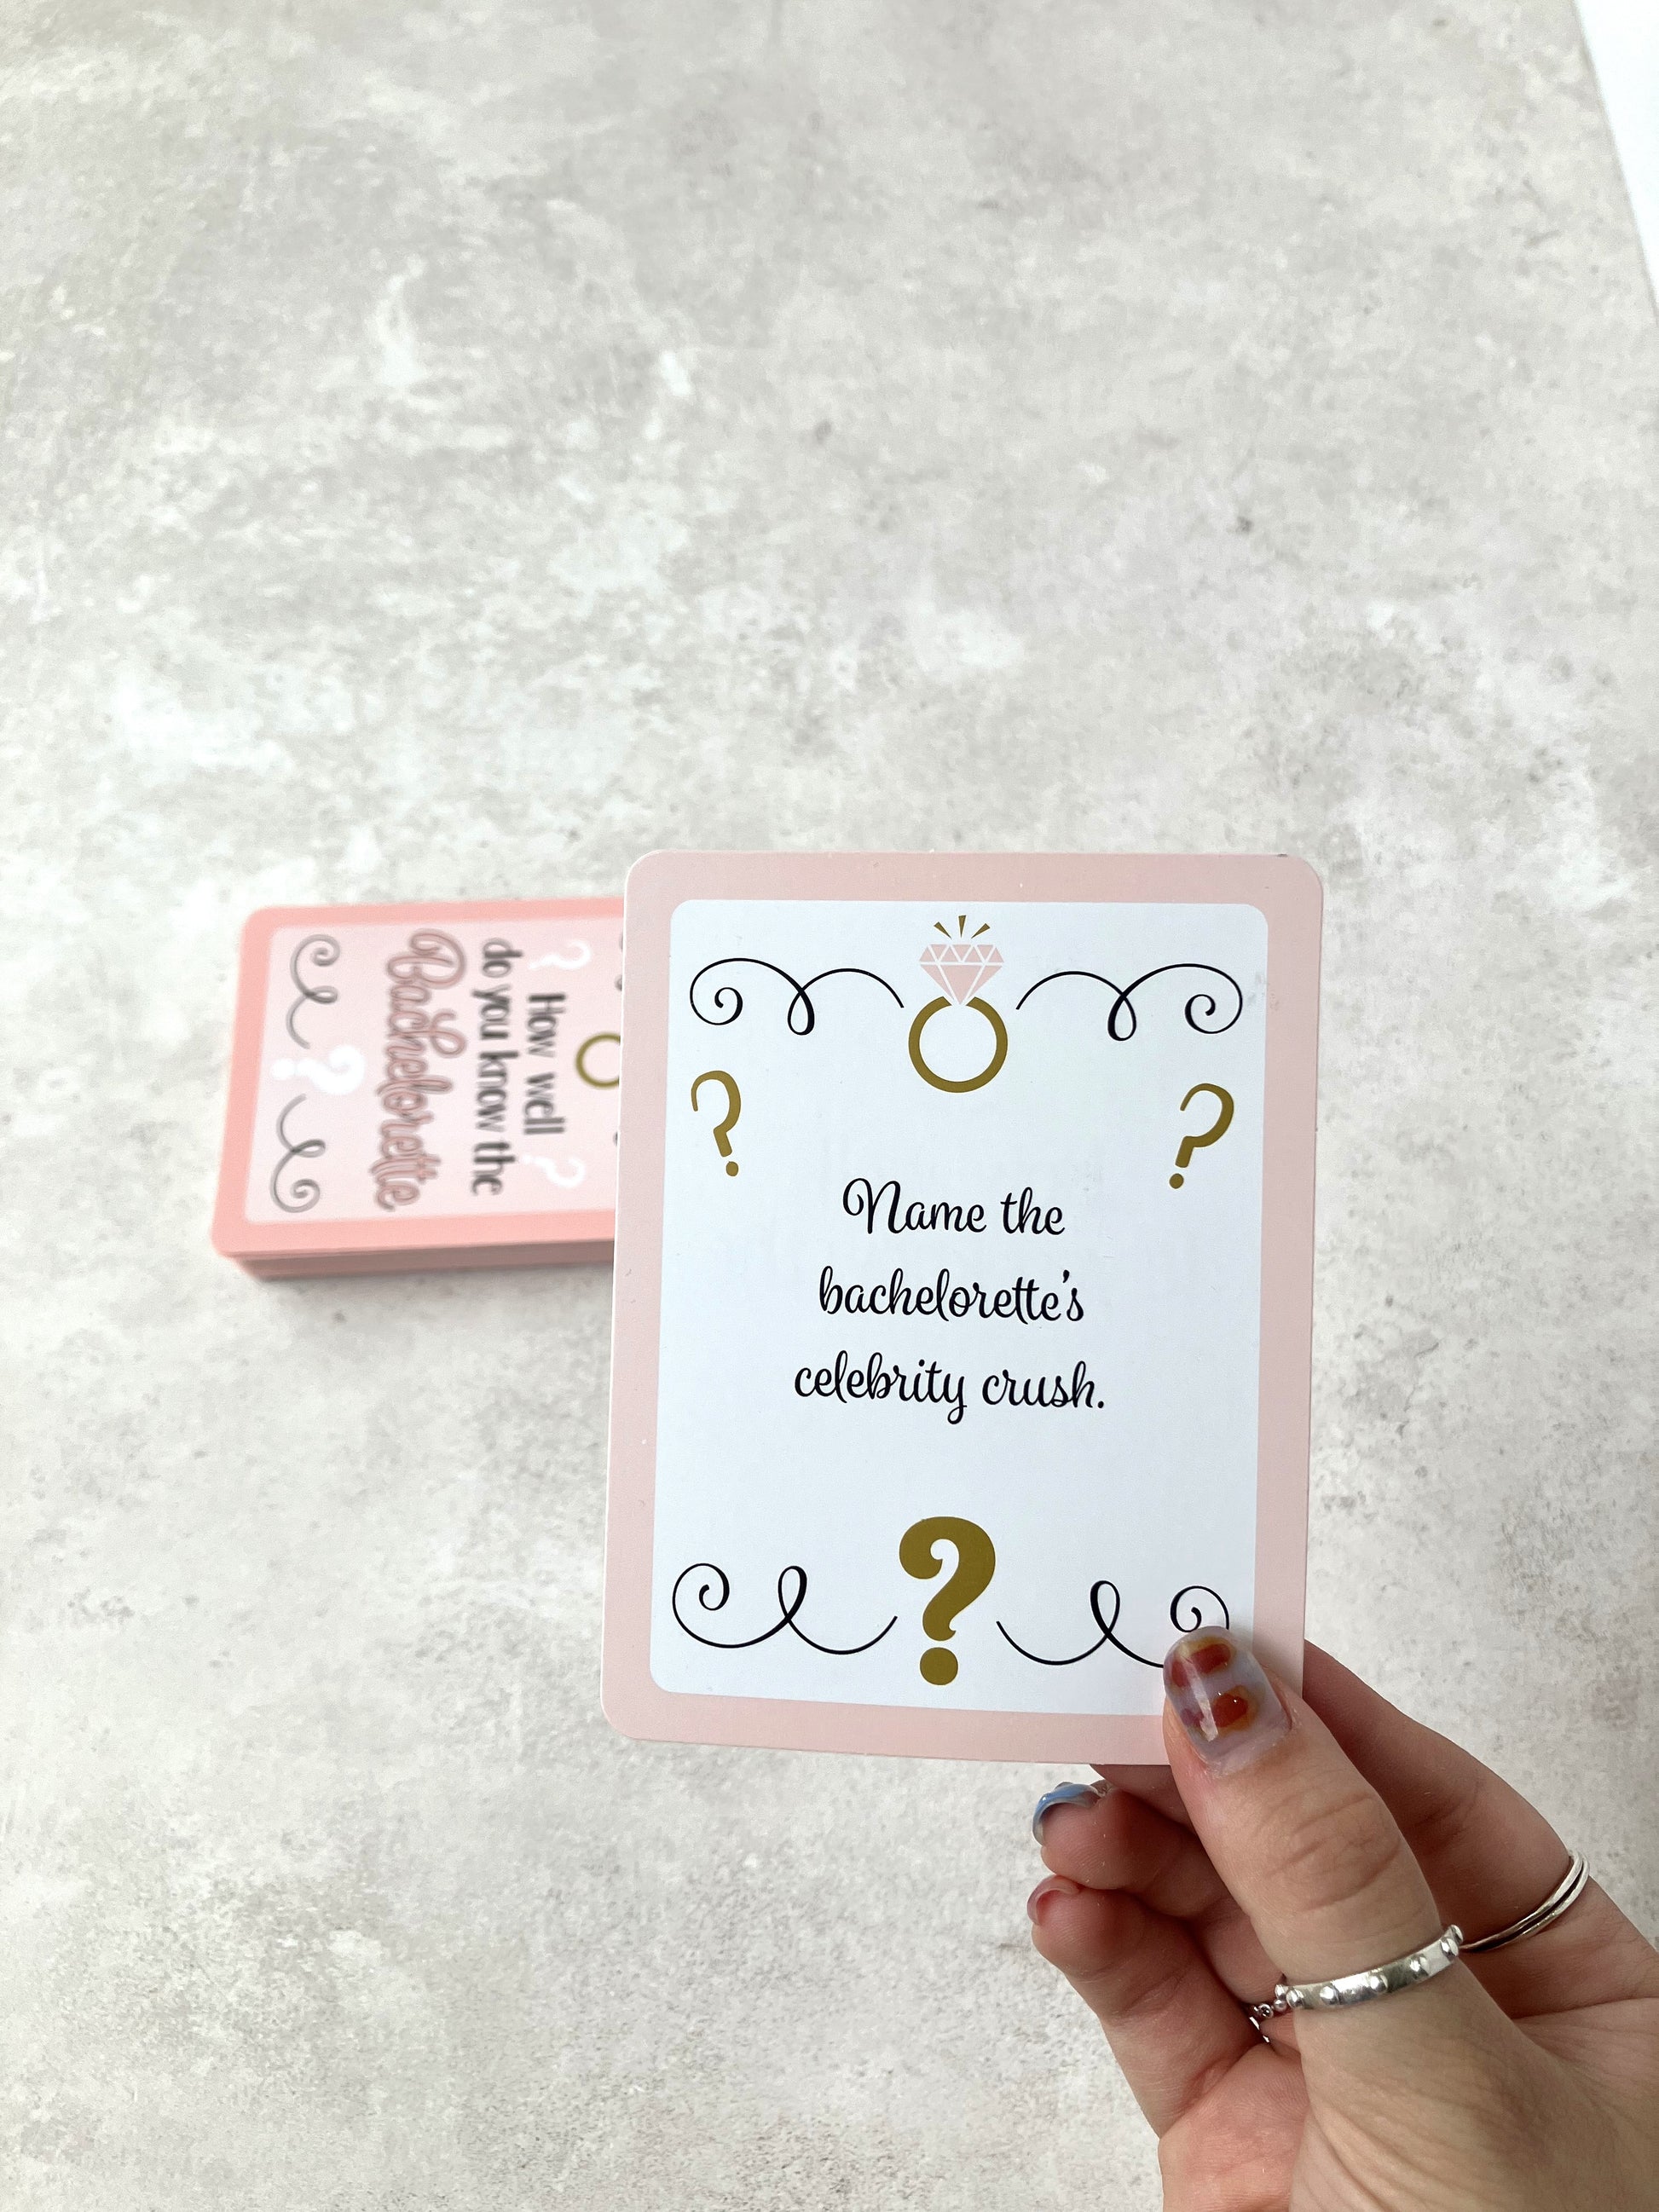 How well
do you know the
Bachelorette
?
?
?
?
?
Name the
bachelorette's
celebrity crush.
?